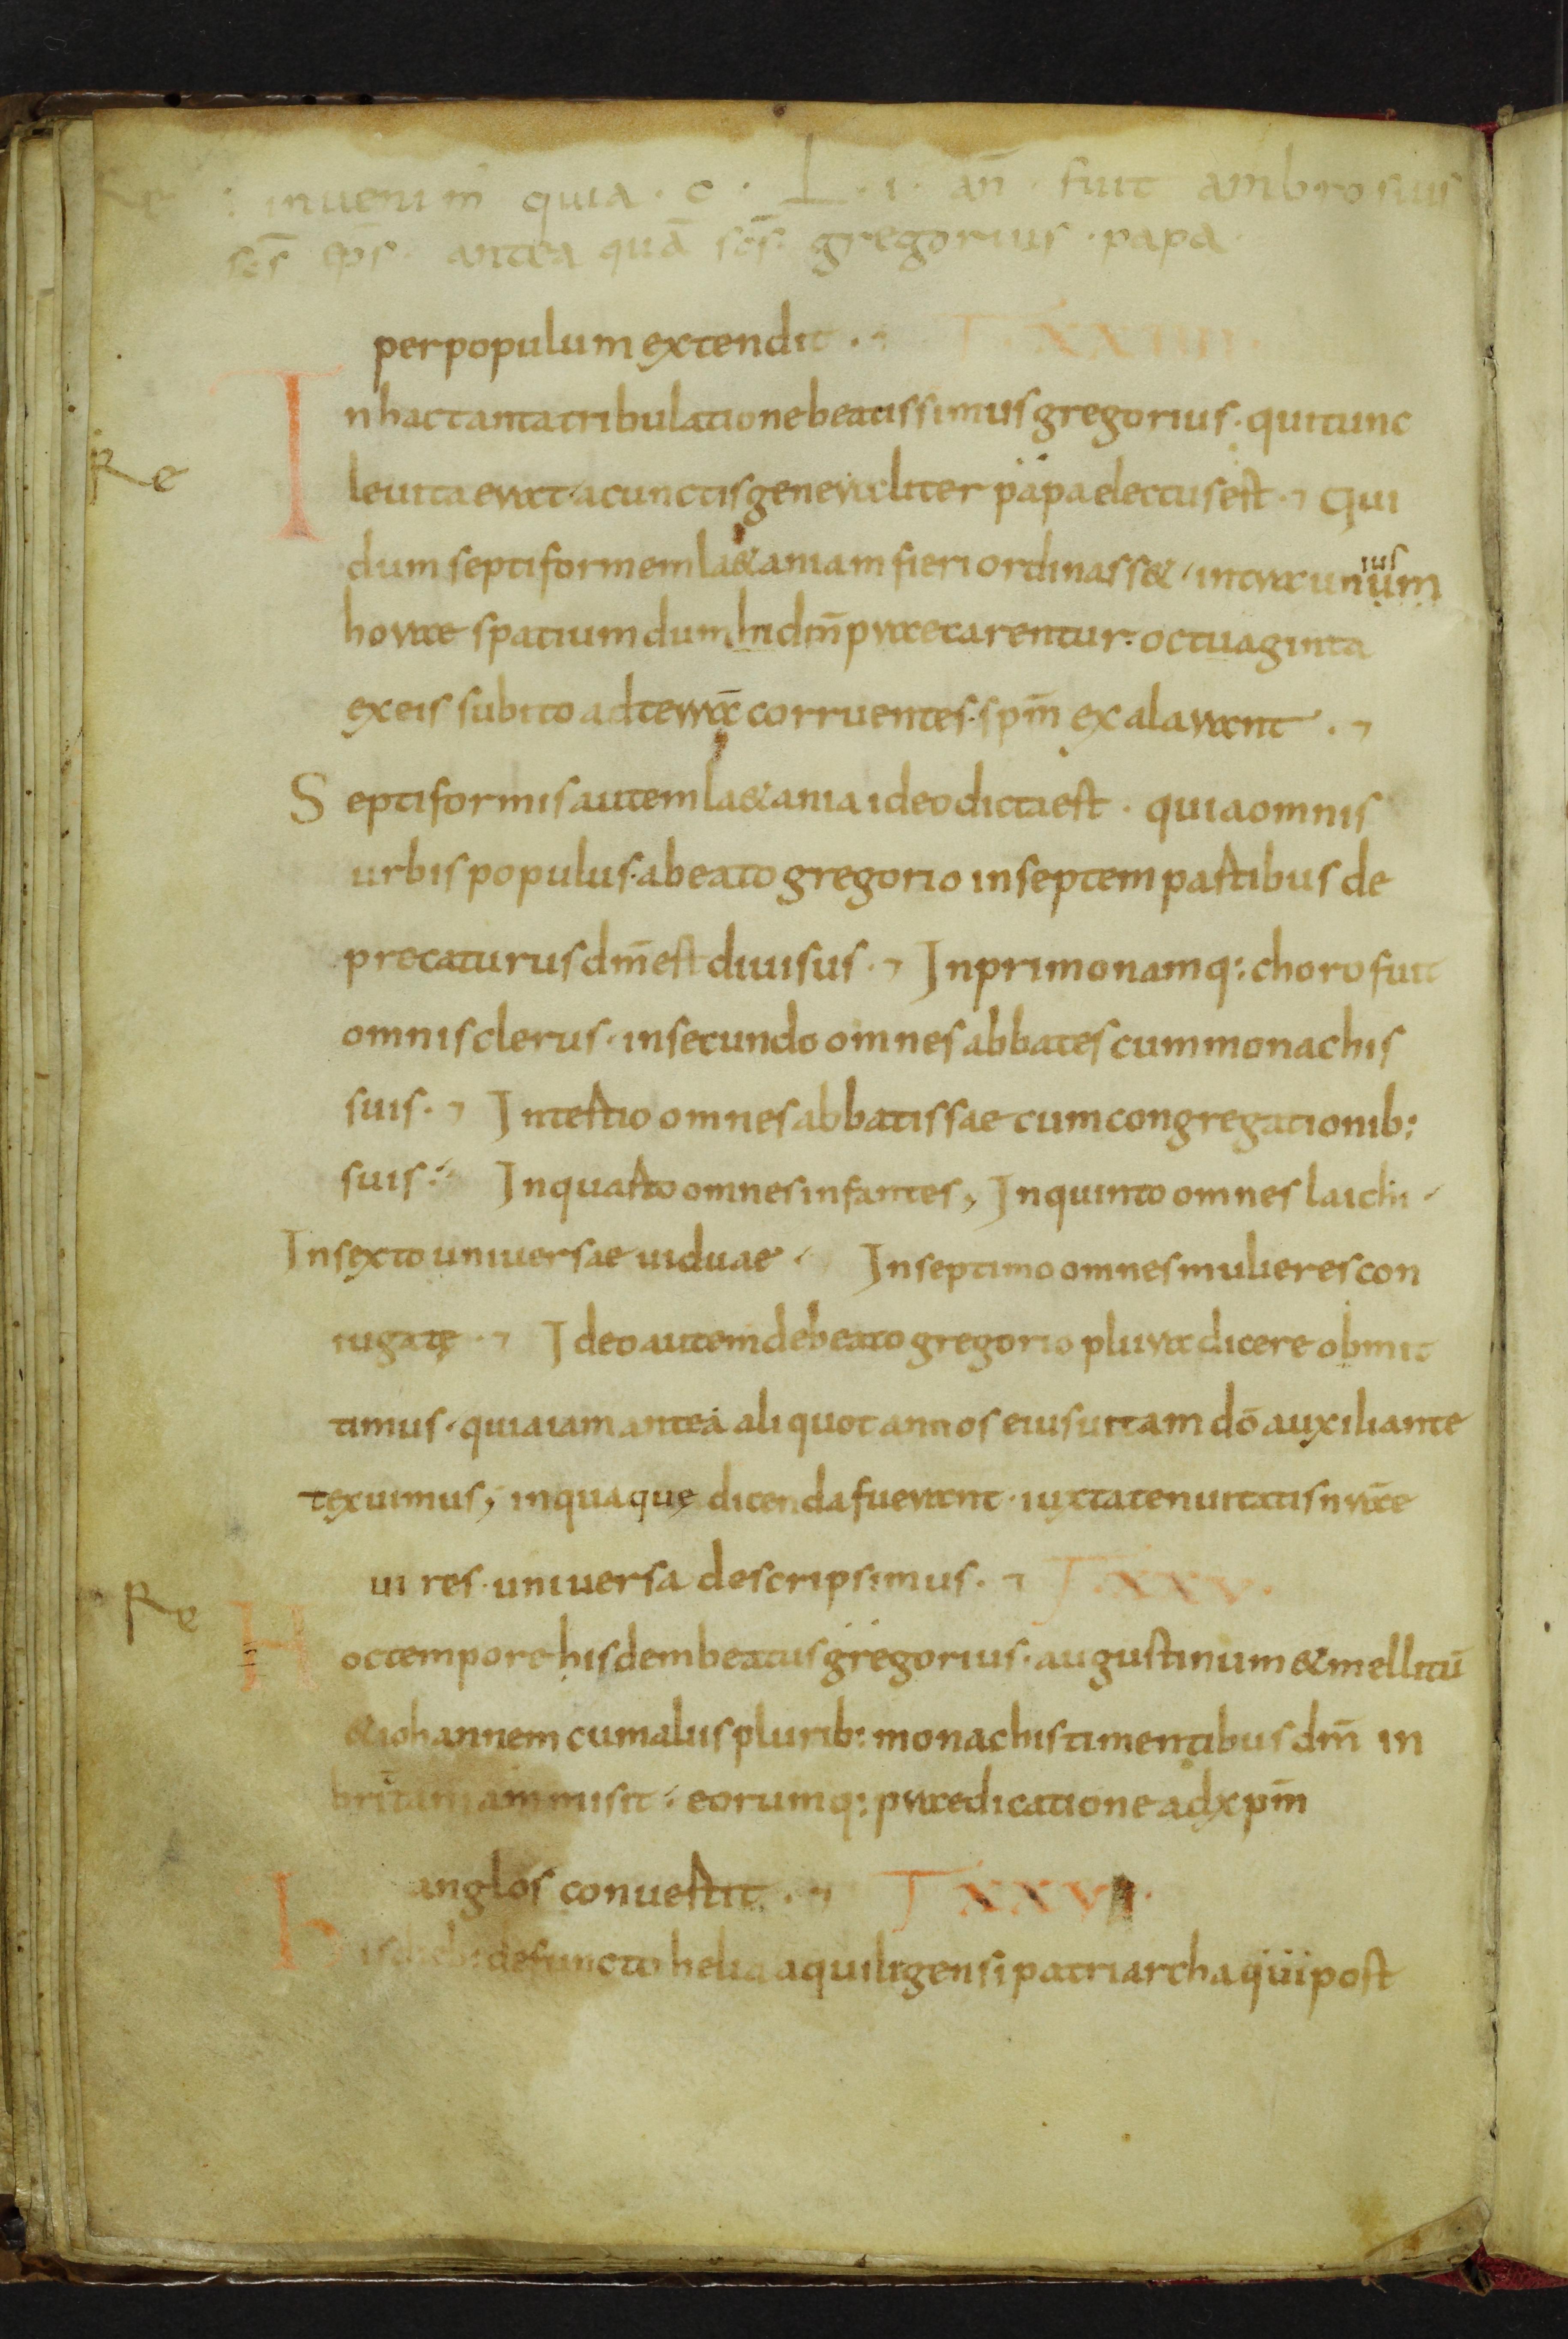 Re : inuenim̄ quia · c · L · i · an̄ · fuit ambrosius
scs̄ ep̄s · antea quā scs̄ gregorius · papa ·
per populum extendit · T · XXIIII ·
In hac tanta tribulatione beatissimus gregorius · qui tunc
Re leuita erat · a cunctis generaliter papa electus est · Qui
dum septiformem la&aniam fieri ordinass& · intra unium
ius
horae spatium dum hi dm̄ praecarentur : octuaginta
ex eis subito ad terrā corruentes · spm̄ exalarant ·
Septiformis autem la&ania ideo dicta est · quia omnis
urbis populus · a beato gregorio in septem partibus de
precaturus dm̄ est diuisus · In primo namq: choro fuit
omnis clerus · in secundo omnes abbates cum monachis
suis · In tertio omnes abbatissae cum congregationib:
suis : In quarto omnes infantes, In quinto omnes laichi ·
In sexto uniuersae uiduae · In septimo omnes mulieres con
iugatę · Ideo autem de beato gregorio plura dicere obmit
timus · quia iam antea aliquot annos eius uitam dō auxiliante
texuimus, in qua quę dicenda fuerant · iuxta tenuitatis nr̄ae
uires · uniuersa descripsimus · T · XXV ·
Re Hoc tempore hisdem beatus gregorius · augustinum & mellitū
& iohannem cum aliis plurib: monachis timentibus dm̄ in
britaniam misit · eorumq: praedicatione ad xpm̄
anglos conuertit · T XXVI ·
his dieb: defuncto helia aquiligensi patriarcha qui post